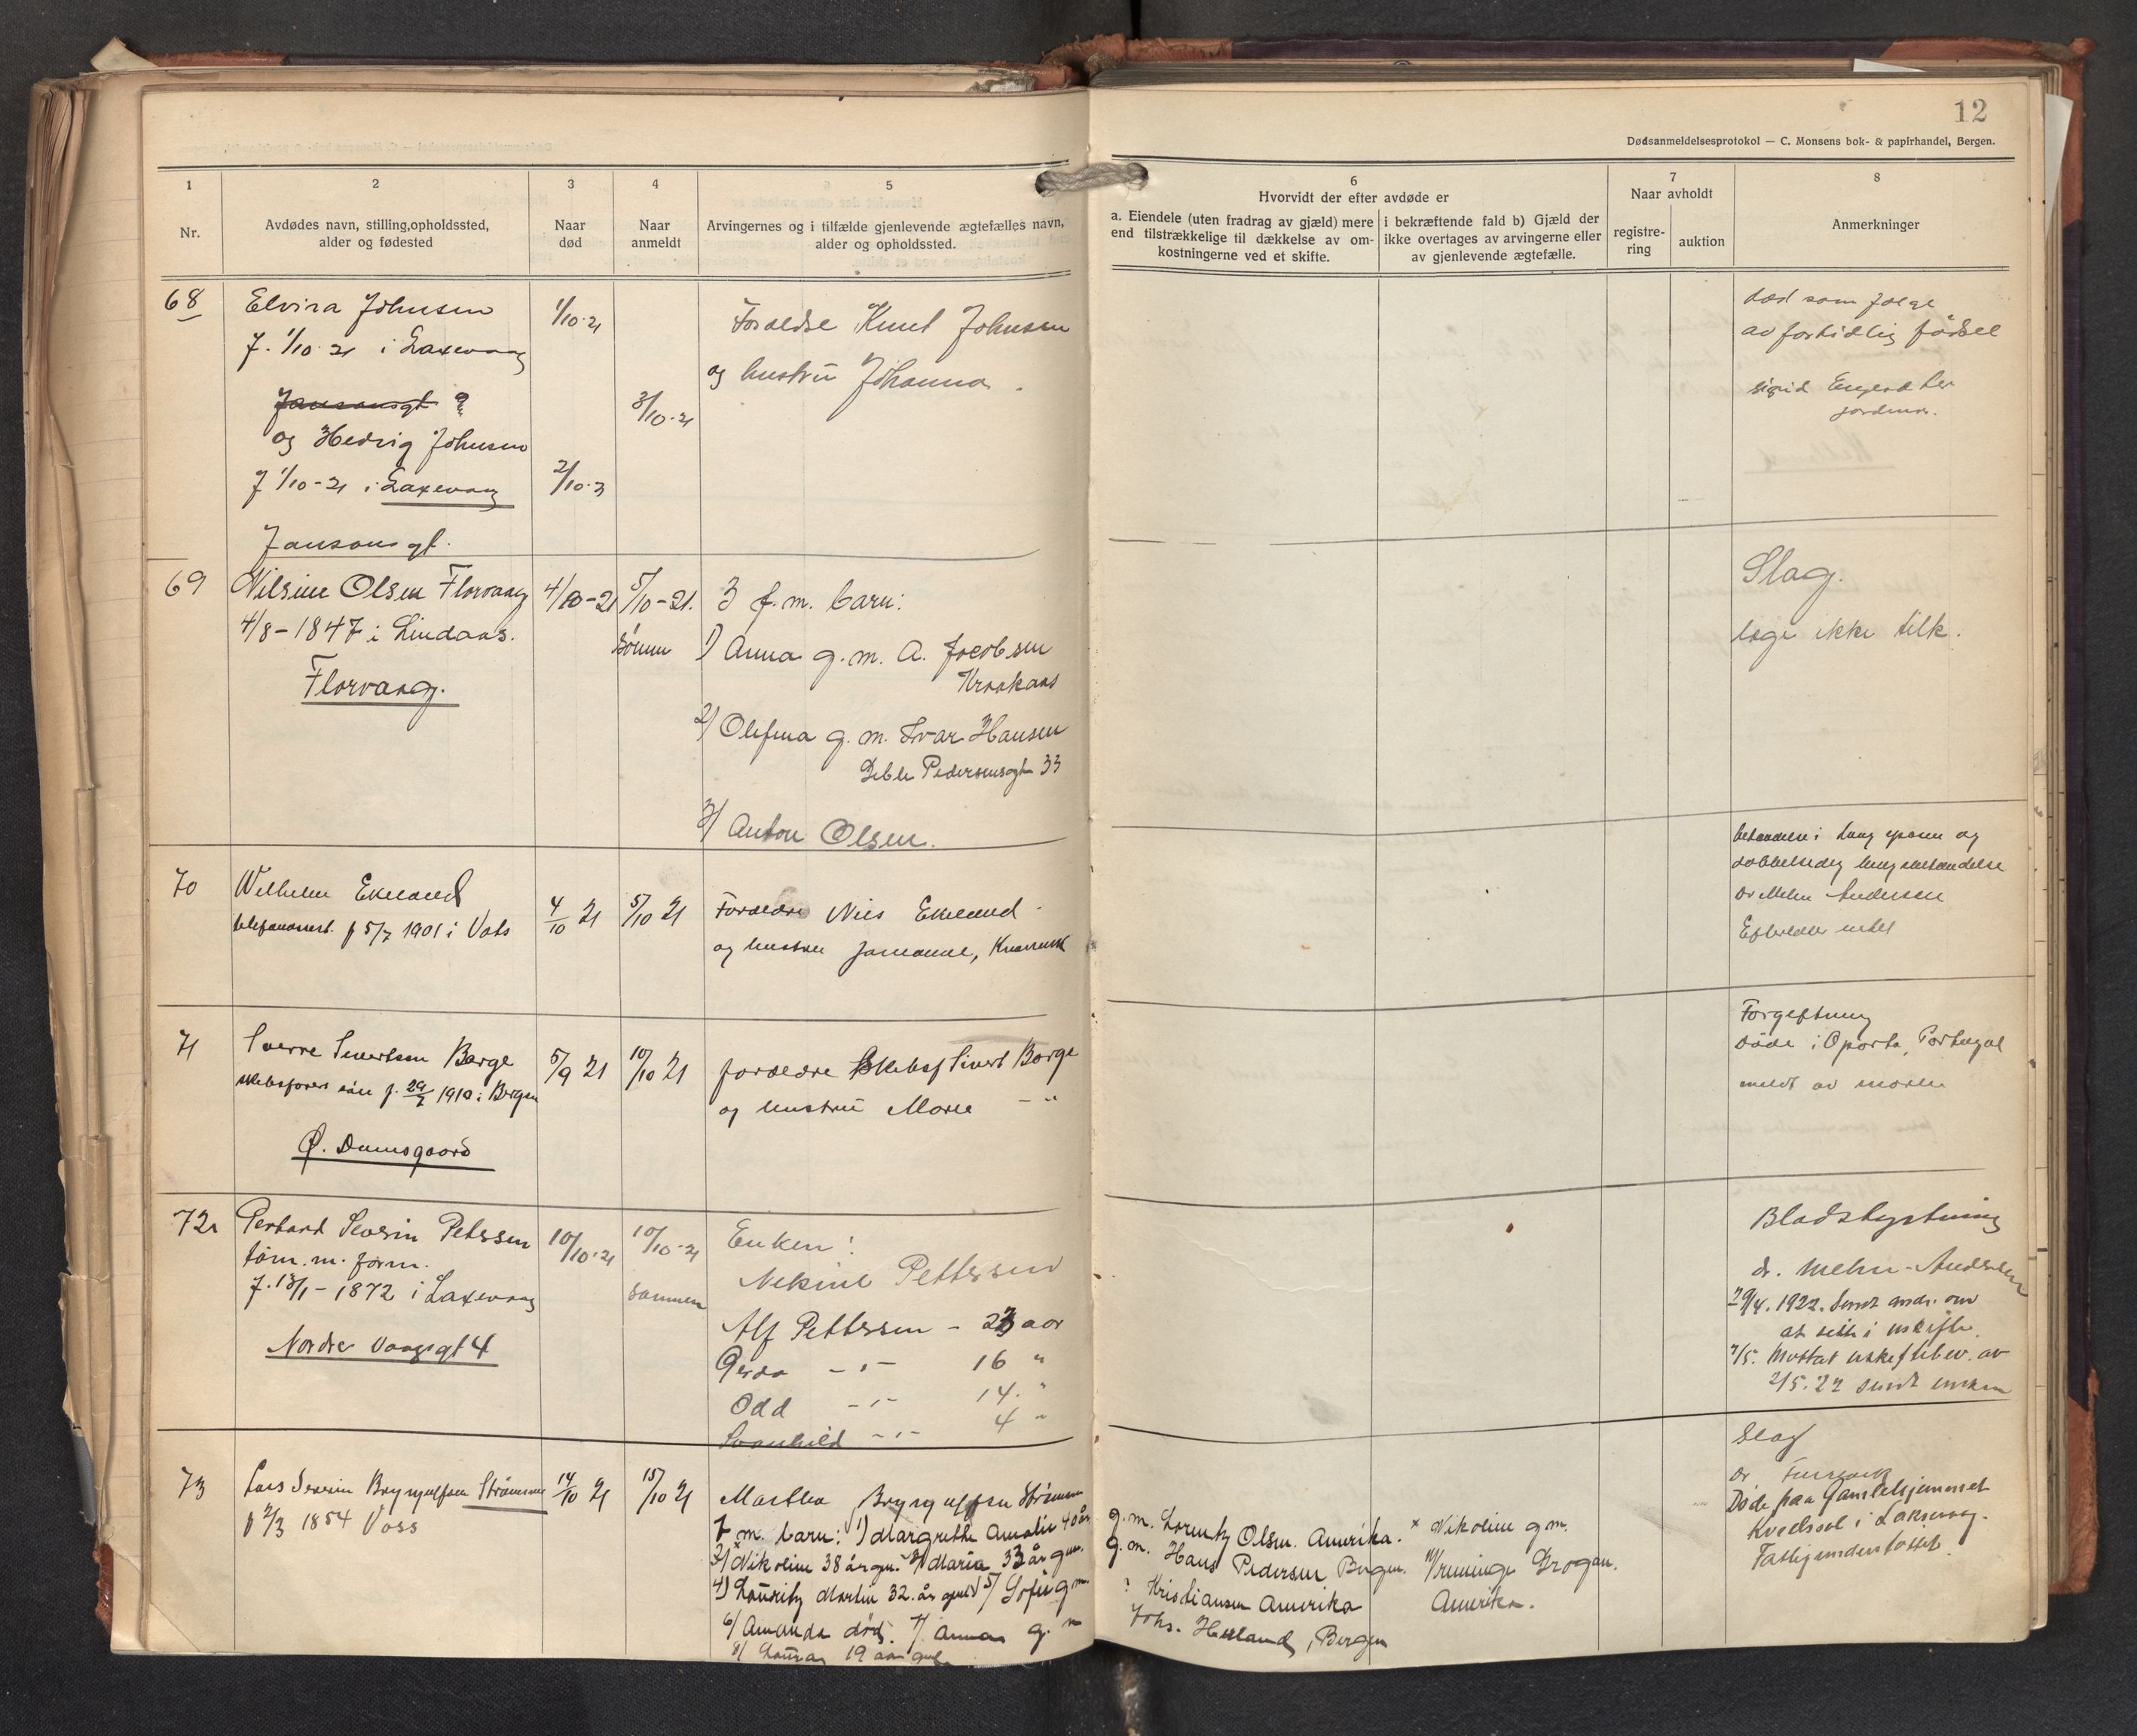 12
Dødsanmeldelsesprotokol — C. Monsens bok- & papirhandel, Bergen.
1
Nr.
2
Avdødes navn, stilling, opholdssted,
alder og fødested
3
Naar
død
4
Naar
anmeldt
5
Arvingernes og i tilfælde gjenlevende ægtefælles navn,
alder og opholdssted.
6
Hvorvidt der efter avdøde er
a. Eiendele (uten fradrag av gjæld) mere
end tilstrækkelige til dækkelse av om-
kostningerne ved et skifte.
i bekræftende fald b) Gjæld der
ikke overtages av arvingerne eller
av gjenlevende ægtefælle.
7
Naar avholdt
registre-
ring
auktion
8
Anmerkninger
68
Elvira Johnsen
f. 1/10 21 i Laxevaag
Jansonsgt ?
og Hedvig Johnsen
f 1/10-21 i Laxevaag
Jansonsgt.
1/10·21
2/10·21
3/10·21
Foreldre Knut Johnsen
og hustru Johanna.
død som følge
av fortidlig fødsel
sigrid
jordmor.
69
Nilsine Olsen Florvaag
4/8-1847 i Lindaas.
Florvaag.
4/10-21
5/10-21.
3 f.m. barn:
1) Anna g. m. A. Jacobsen
2) g. m. Ivar Hansen
Pedersensgt 33
3/ Anton Olsen.
Slag.
læge ikke tilk.
70
Wilhelm Ekeland
f 5/7 1901 i Vats
4/10 21
5/10 21
Foreldre Nils Ekeland
og hustru
betændelse i
dobbeltsidig lungebetændelse
Dr Mehn Andersen
Efterlader intet
71
Sverre Sivertsen Børge
skibsførers søn f. 29/7 1910 i Bergen
Ø. Damsgaard
5/9 21
10/10 21
foreldre Skibsf Sivert Børge
og hustru Marie - "
Forgiftning
Døde i Oporto, Portugal
meldt av moren
72
Gerhard Severin Pettersen
tøm. m. form.
f. 13/1-1872 i Laxevaag
Nordre Vaagsgt 4
10/10·21
10/10·21
sønnen
Enken:
Nekine Pettersen
Alf Pettersen - 23 aar
Gerda - " - 16 "
Odd - " - 14 "
Svanhild - " - 4 "
Blodstyrtning
dr. Mehn-Andersen
29/4. 1922. Sendt andr. om
at sitte i uskifte.
Mottat uskiftebev. av
2/5. 22 sendt enken
73
Lars Severin Brynjulfsen Strømme
f 2/3 1854 Voss
14/10 21
15/10 21
Martha Brynjulfsen Strømme
7 m. barn: 1) Margrethe Amalie 40 år
g. m. Lorentz Olsen. Amerika.
2) x Nikoline 38 år gm. 3/ Maria 33 år gm.
g. m. Hans Pedersen Bergen.
4) Lauritz Martin 32. år gml 5/ Sofie g m
? Kristiansen Amerika
6/ Amanda død. 7/ Anna g. m
Johs. Hesland, Bergen
8/ 19 aar gml
x Nikoline g m.
Grogan.
Amerika.
Slag
Dr
Døde paa Gamlehjemmet
Kveldssol i Laksevaag.